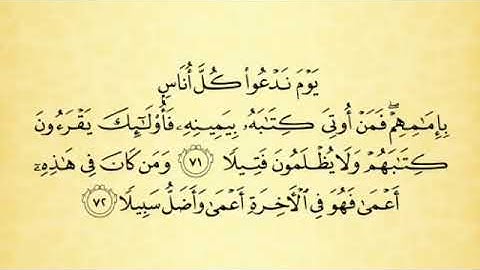 يَوۡمَ نَدۡعُواْ كُلَّ أُنَاسِۭ
بِإِمَٰمِهِمۡۖ فَمَنۡ أُوتِيَ كِتَٰبَهُۥ بِيَمِينِهِۦ فَأُوْلَٰٓئِكَ يَقۡرَءُونَ
كِتَٰبَهُمۡ وَلَا يُظۡلَمُونَ فَتِيلٗا ٧١ وَمَن كَانَ فِي هَٰذِهِۦٓ
أَعۡمَىٰ فَهُوَ فِي ٱلۡأٓخِرَةِ أَعۡمَىٰ وَأَضَلُّ سَبِيلٗا ٧٢